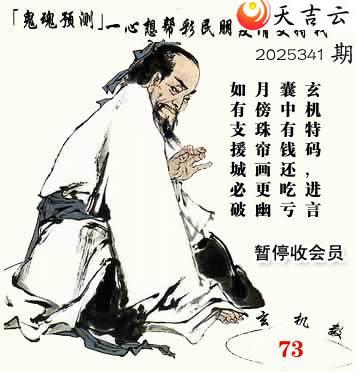 「鬼魂预测」一心想帮彩民朋
天吉云
2025341 期
玄机特码，进言
囊中有钱还吃亏
月傍珠帘画更幽
如有支援城必破
暂停收会员
玄机数
73